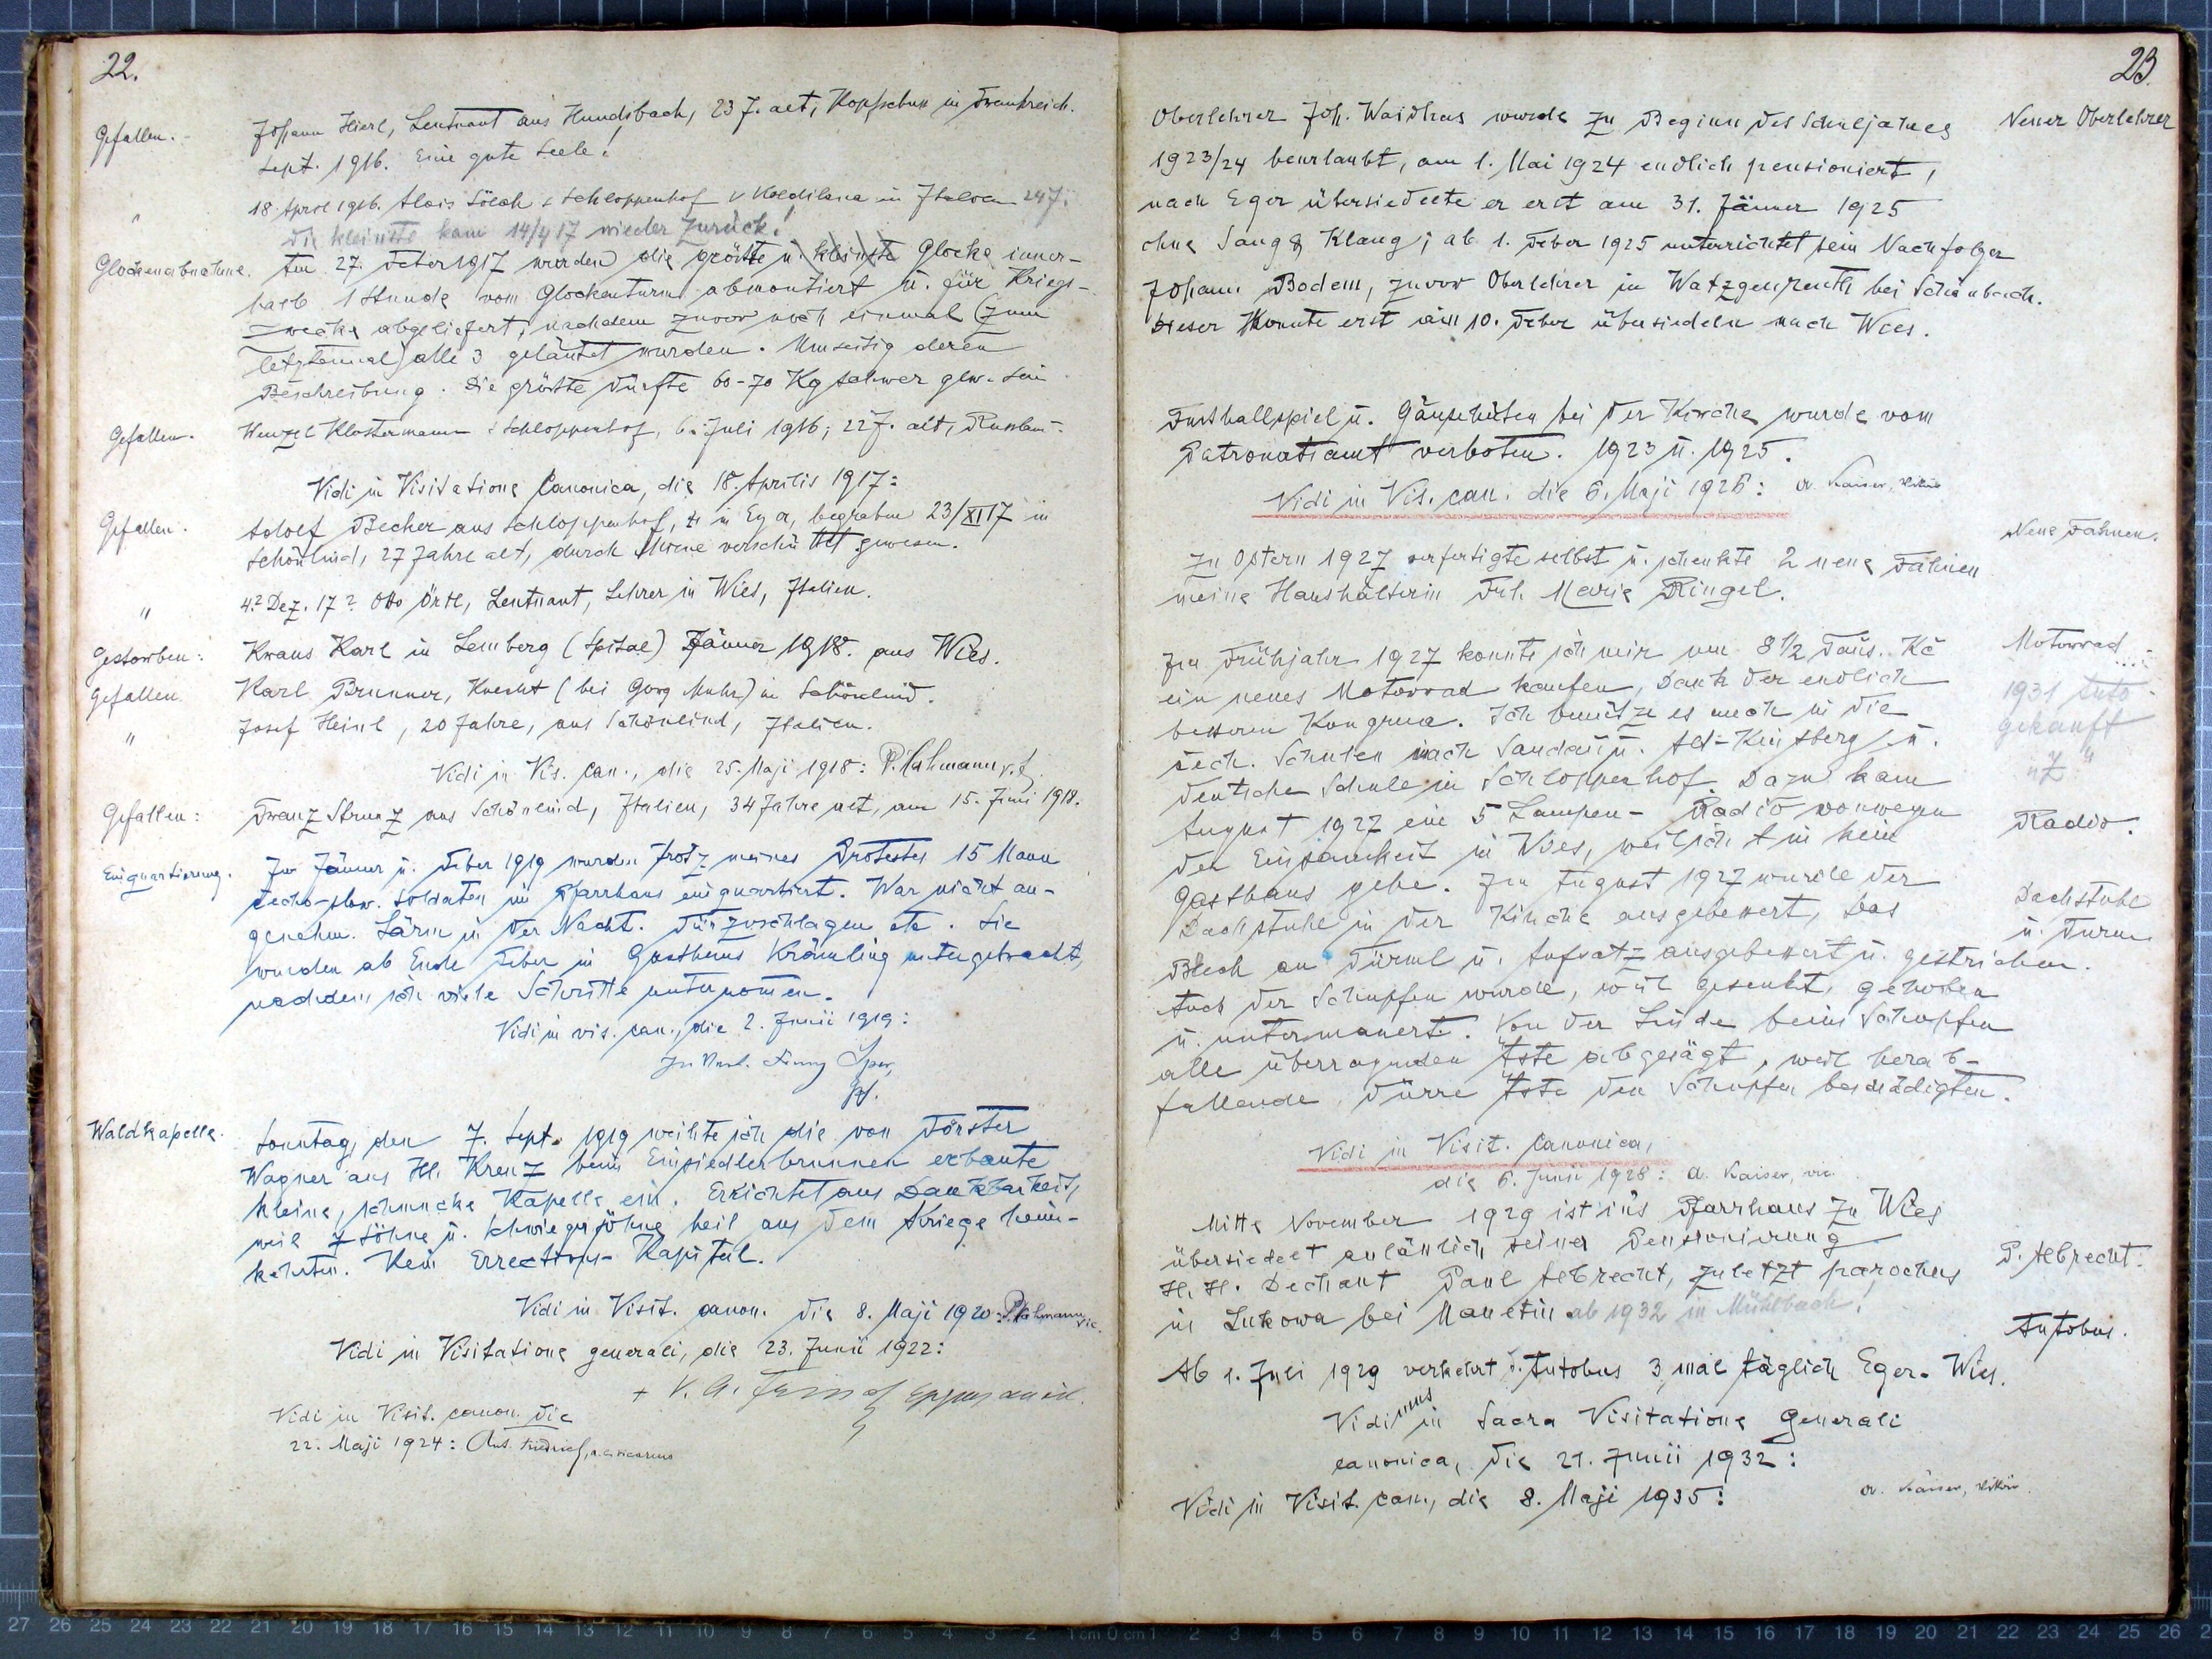 22.
Gefallen. Johann Hierl, Leutnant aus Hundsbach, 23 J. alt, Kopfschuss in Frankreich.
Sept. 1916. Eine gute Seele!
" 18. April 1916. Alois Sölch Schloppenhof in Italien 24 J.
Die kleinste kam 14/4 17 wieder zurück!
Glockenabnahme. Am 27. Feber 1917 wurden die größte u. kleinste Glocke inner-
halb 1 Stunde vom Glockenturm abmontiert u. für Kriegs-
zwecke abgeliefert, nachdem zuvor noch einmal (zum
letztenmal) alle 3 geläutet wurden. Umseitig deren
Beschreibung. Die größte dürfte 60-70 Kg schwer gew. sein
Gefallen. Wenzel Klostermann Schloppenhof, 6. Juli 1916, 22 J. alt,
Vidi in Visitatione Canonica, die 18. Aprilis 1917:
Gefallen. Adolf Becher aus Schloppenhof, in Eger, begraben 23/XI 17 in
Schönlind, 27 Jahre alt, durch Mine verschüttet gewesen.
" 4.? Dez. 17? Otto Örtl, Leutnant, Lehrer in Wies, Italien.
Gestorben: Kraus Karl in Lemberg (Spital) Jänner 1918. aus Wies.
Gefallen. Karl Brunner, Knecht (bei Georg Muhr) in Schönlind.
" Josef Heinl, 20 Jahre, aus Schönlind, Italien.
Vidi in Vis. Can., die 25. Maji 1918:
Gefallen: Franz Strunz aus Schönlind, Italien, 34 Jahre alt, am 15. Juni 1918.
Einquartierung. Im Jänner u. Feber 1919 wurden trotz meines Protestes 15 Mann
čecho-slow. Soldaten im Pfarrhaus einquartiert. War nicht an-
genehm. Lärm in der Nacht. Türzuschlagen etc. Sie
wurden ab Ende Feber in Gasthaus Krämling untergebracht,
nachdem ich viele Schritte unternomen.
Vidi in vis. can., die 2. Junii 1919:
Waldkapelle. Sonntag, den 7. Sept. 1919 weihte ich die von Förster
Wagner aus Hl. Kreuz beim Einsiedlerbrunnen erbaute
kleine, schmucke Kapelle ein. Errichtet aus Dankbarkeit,
weil 7 Söhne u. Schwiegersöhne heil aus dem Kriege heim-
kehrten. Kein Errections-Kapital.
Vidi in Visit. canon. die 8. Maji 1920:
Vidi in Visitatione generali, die 23. Junii 1922:
Vidi in Visit. canon. die
22. Maji 1924: Ant. Friedrich,
23.
Oberlehrer Joh. Waidhas wurde zu Beginn des Schuljahres Neuer Oberlehrer
1923/24 beurlaubt, am 1. Mai 1924 endlich pensioniert,
nach Eger übersiedelte er erst am 31. Jänner 1925
ohne Sang & Klang; ab 1. Feber 1925 unterrichtet sein Nachfolger
Johann Bodem, zuvor Oberlehrer in Watzgenreuth bei Schönbach.
Dieser konnte erst am 10. Feber übersiedeln nach Wies.
Fussballspiel u. Gänsehüten bei der Kirche wurde vom
Patronatsamt verboten. 1923 u. 1925.
Vidi in Vis. can. die 6. Maji 1926: A. Kaiser, Vikär
Neue Fahnen.
Zu Ostern 1927 verfertigte selbst u. schenkte 2 neue Fahnen
meine Haushälterin Frl. Marie Ringel.
Im Frühjahr 1927 konnte ich mir um 8 1/2 Taus. Kč Motorrad
ein neues Motorrad kaufen, Dank der endlich 1931 Auto
besseren Kongrua. Ich benütze es auch in die gekauft
čech. Schulen nach Sandau u. Alt-Kinsberg, u. "Z"
deutsche Schule in Schloppenhof. Dazu kam
August 1927 ein 5 Lampen-Radio vonwegen Radio.
der Einsamkeit in Wies, weil ich in kein
Gasthaus gehe. Im August 1927 wurde der
Dachstuhl in der Kirche ausgebessert, das Dachstuhl
u. Turm
Blech an Türml u. Aufsatz ausgebessert u. gestrichen.
Auch der Schupfen wurde, weil gesenkt, gehoben
u. untermauert. Von der Linde beim Schupfen
alle überragenden Äste abgesägt, weil herab-
fallende dürre Äste den Schupfen beschädigten.
Vidi in Visit. Canonica,
die 6. Junii 1928: A. Kaiser, vic.
Mitte November 1929 ist ins Pfarrhaus zu Wies
übersiedelt anläßlich seiner Pensionierung
H. H. Dechant Paul Albrecht, zuletzt parochus P. Albrecht.
in Lukowa bei Manetin ab 1932 in Mühlbach!
Autobus.
Ab 1. Juli 1929 verkehrt d. Autobus 3 mal täglich Eger-Wies.
Vidimus in Sacra Visitatione Generali
canonica, die 21. Junii 1932:
Vidi in Visit. can, die 8. Maji 1935: A. Kaiser, Vikär
27 26 25 24 23 22 21 20 19 18 17 16 15 14 13 12 11 10 9 8 7 6 5 4 3 2 1 cm 0 cm 1 2 3 4 5 6 7 8 9 10 11 12 13 14 15 16 17 18 19 20 21 22 23 24 25 26